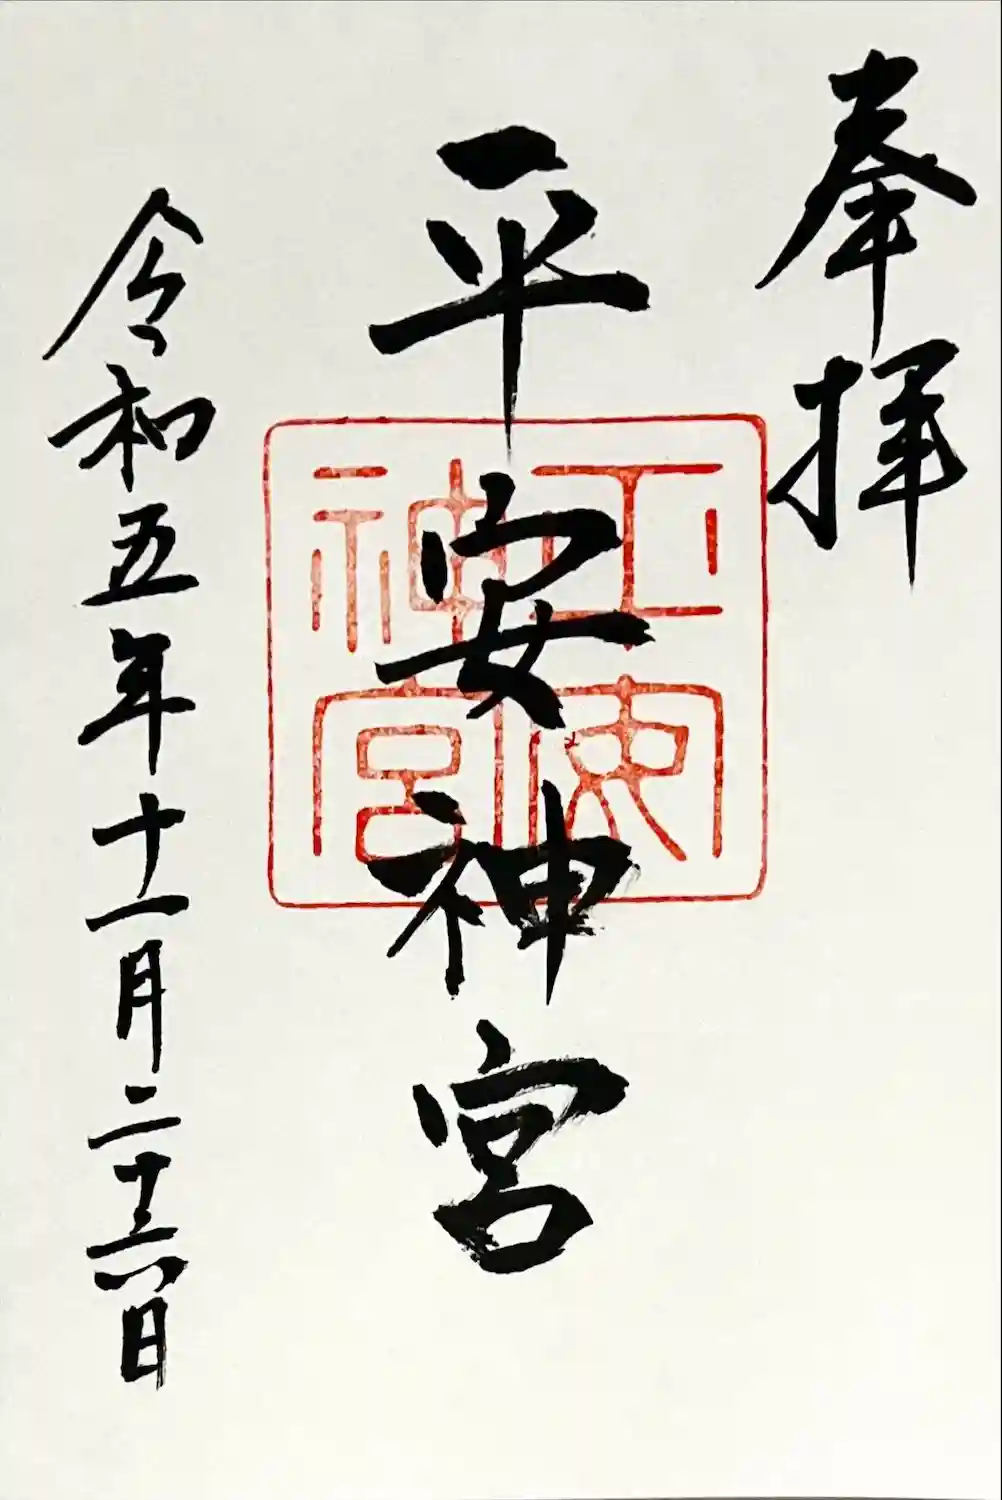 奉拝
平安神宮
平安神宮
令和五年十一月二十六日